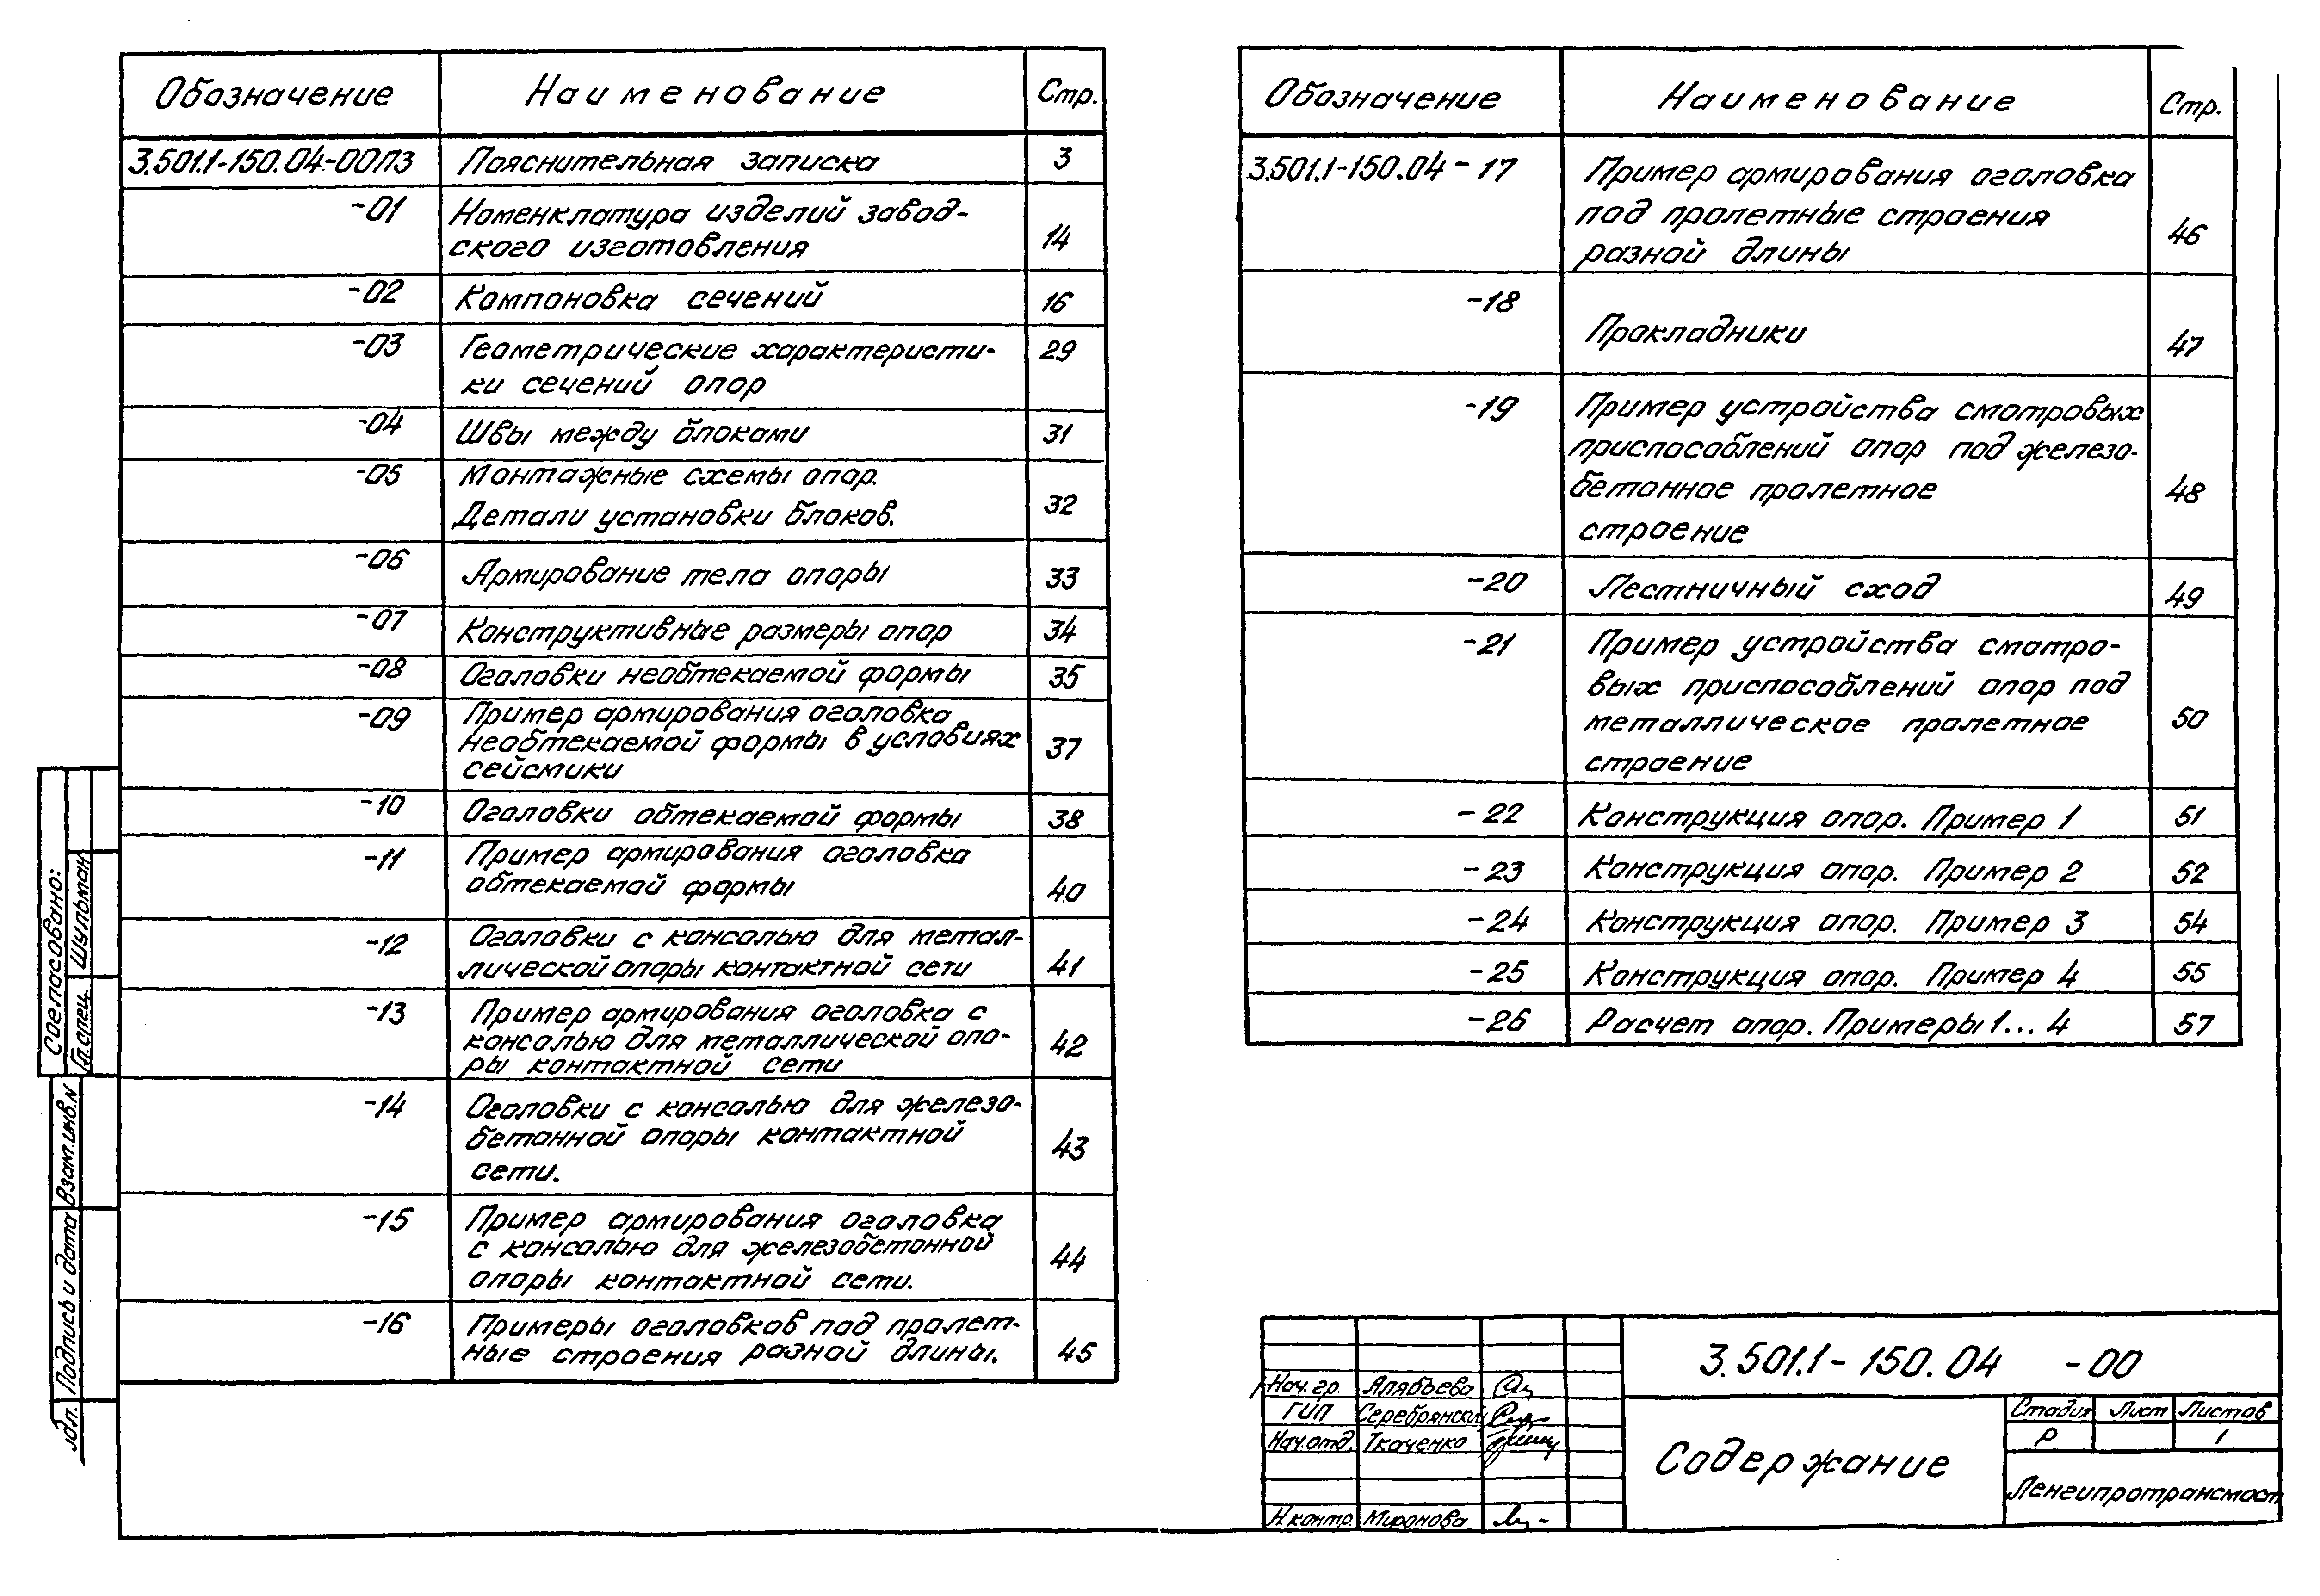 Обозначение Наименование Стр.
3.501.1-150.04-00ПЗ Пояснительная записка 3
-01 Номенклатура изделий завод-
ского изготовления 14
-02 Компоновка сечений 16
-03 Геометрические характеристи- 29
ки сечений опор
-04 Швы между блоками 31
-05 Монтажные схемы опор.
Детали установки блоков. 32
-06 Армирование тела опоры 33
-07 Конструктивные размеры опор 34
-08 Оголовки необтекаемой формы 35
-09 Пример армирования оголовка
необтекаемой формы в условиях 37
сейсмики
-10 Оголовки обтекаемой формы 38
-11 Пример армирования оголовка
обтекаемой формы 40
-12 Оголовки с консолью для метал-
лической опоры контактной сети 41
-13 Пример армирования оголовка с
консолью для металлической опо- 42
ры контактной сети
-14 Оголовки с консолью для железо-
бетонной опоры контактной 43
сети.
-15 Пример армирования оголовка
с консолью для железобетонной 44
опоры контактной сети.
-16 Примеры оголовков под пролет-
ные строения разной длины. 45
Обозначение Наименование Стр.
3.501.1-150.04-17 Пример армирования оголовка
под пролетные строения 46
разной длины
-18 Прокладники 47
-19 Пример устройства смотровых
приспособлений опор под железо-
бетонное пролетное 48
строение
-20 Лестничный сход 49
-21 Пример устройства смотро-
вых приспособлений опор под
металлическое пролетное 50
строение
-22 Конструкция опор. Пример 1 51
-23 Конструкция опор. Пример 2 52
-24 Конструкция опор. Пример 3 54
-25 Конструкция опор. Пример 4 55
-26 Расчет опор. Примеры 1...4 57
Согласовано:
Гл.спец. Шульман
Взам.инв.N
Подпись и дата
одл.
3.501.1-150.04 -00
Нач.гр. Алябьева
ГИП Серебрянский
Нач.отд. Ткаченко
Н.контр. Миронова
Содержание
Стадия Лист Листов
Р 1
Ленгипротрансмост